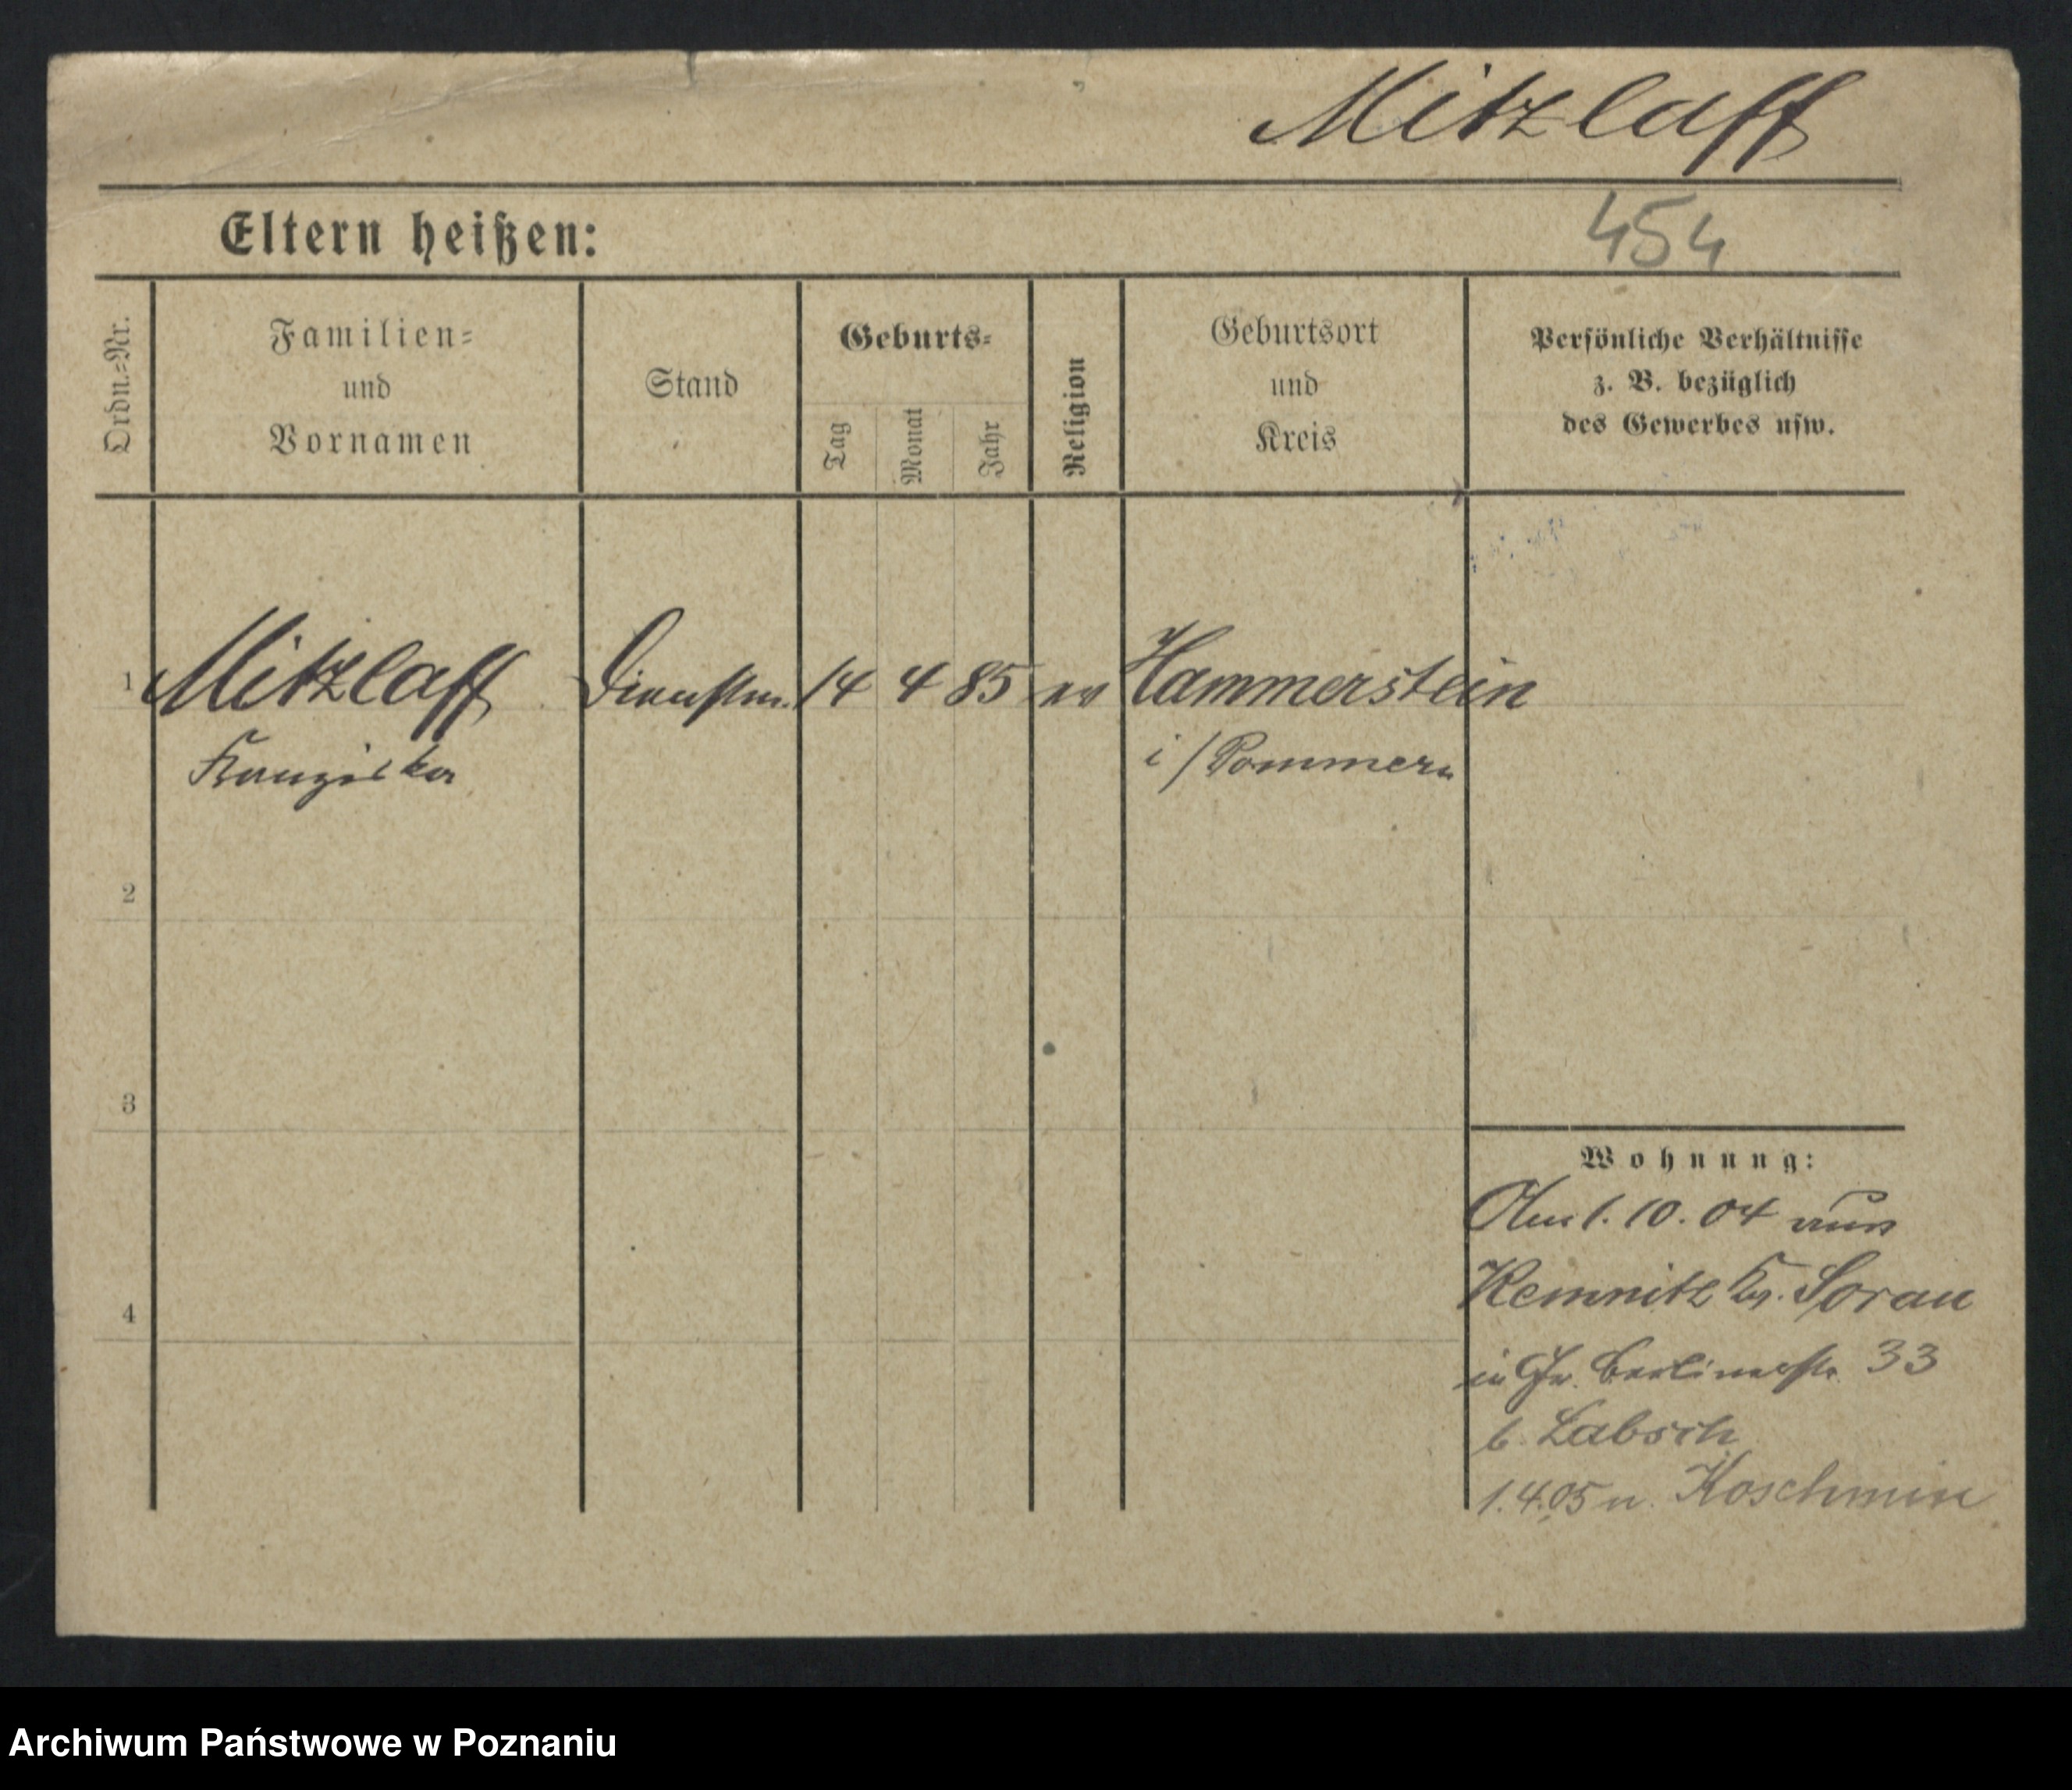 Mitzlaff
Eltern heißen:
454
Ordn.=Nr.
Familien=
und
Vornamen
Stand
Geburts=
Tag
Monat
Jahr
Religion
Geburtsort
und
Kreis
Persönliche Verhältnisse
z. B. bezüglich
des Gewerbes usw.
1 Mitzlaff Dienstm. 14 4 85 ev Hammerstein
Franziska i/Pommern
2
3
4
Wohnung:
Am 1. 10. 04 aus
Kemnitz Kr. Sorau
in Gr. Berlinerstr. 33
b. Labsch
1.4.05 n. Koschmin
Archiwum Państwowe w Poznaniu